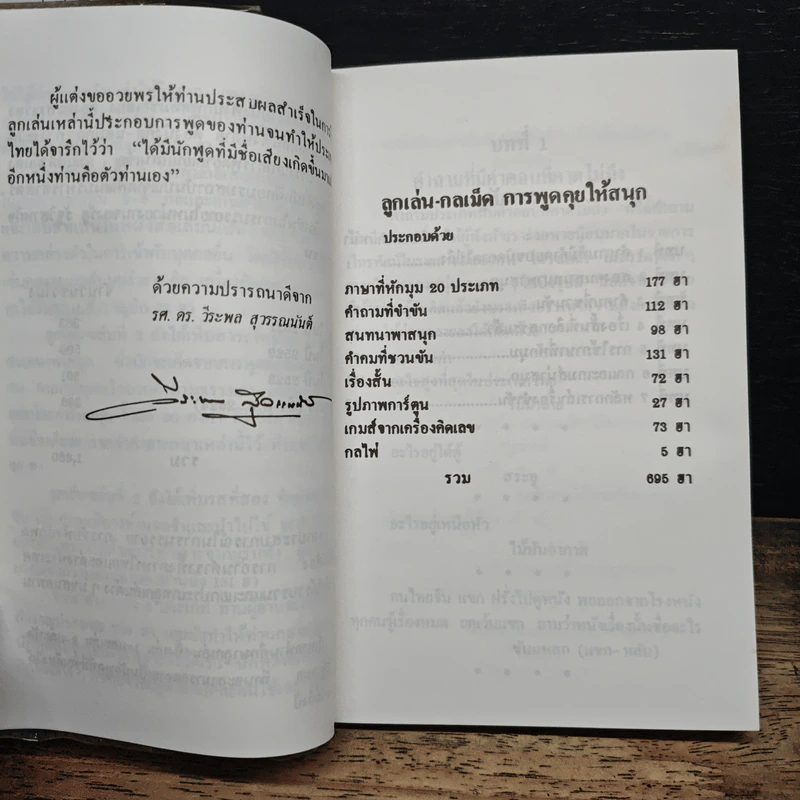 ผู้แต่งขออวยพรให้ท่านประสบผลสำเร็จในการ
ลูกเล่นเหล่านี้ประกอบการพูดของท่านจนทำให้ประ
ไทยได้จารึกไว้ว่า “ได้มีนักพูดที่มีชื่อเสียงเกิดขึ้นมา
อีกหนึ่งท่านคือตัวท่านเอง”
ด้วยความปรารถนาดีจาก
รศ. ดร. วีระพล สุวรรณนันต์
ลูกเล่น-กลเม็ด การพูดคุยให้สนุก
ประกอบด้วย
ภาษาที่หักมุม 20 ประเภท 177 ฮา
คำถามที่ขำขัน 112 ฮา
สนทนาพาสนุก 98 ฮา
คำคมที่ชวนขัน 131 ฮา
เรื่องสั้น 72 ฮา
รูปภาพการ์ตูน 27 ฮา
เกมส์จากเครื่องคิดเลข 73 ฮา
กลไพ่ 5 ฮา
รวม 695 ฮา